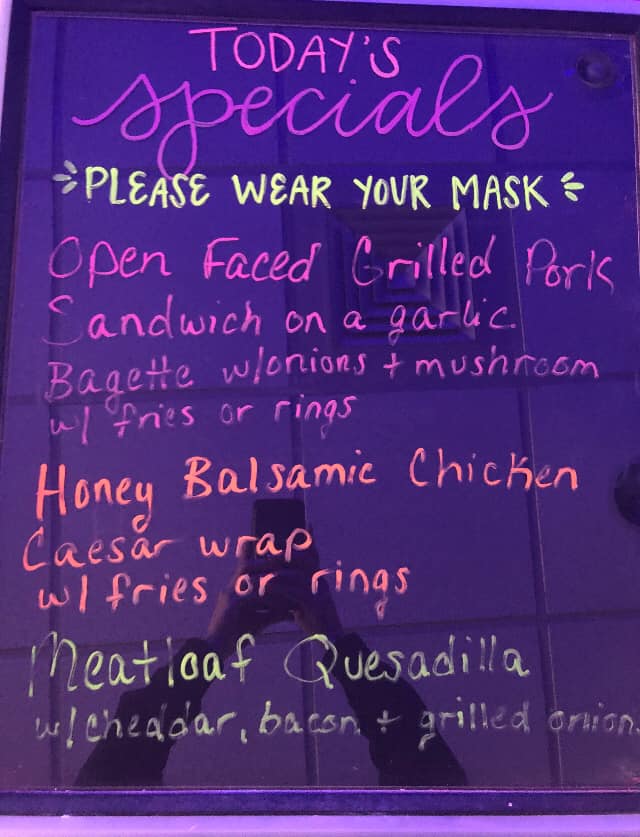 TODAY'S
specials
PLEASE WEAR YOUR MASK
Open Faced Grilled Pork
Sandwich on a garlic.
Bagette w/onions + mushroom
w/ fries or rings
Honey Balsamic Chicken
Caesar wrap
w/ fries or rings
Meatloaf Quesadilla
w/cheddar, bacon + grilled onion.